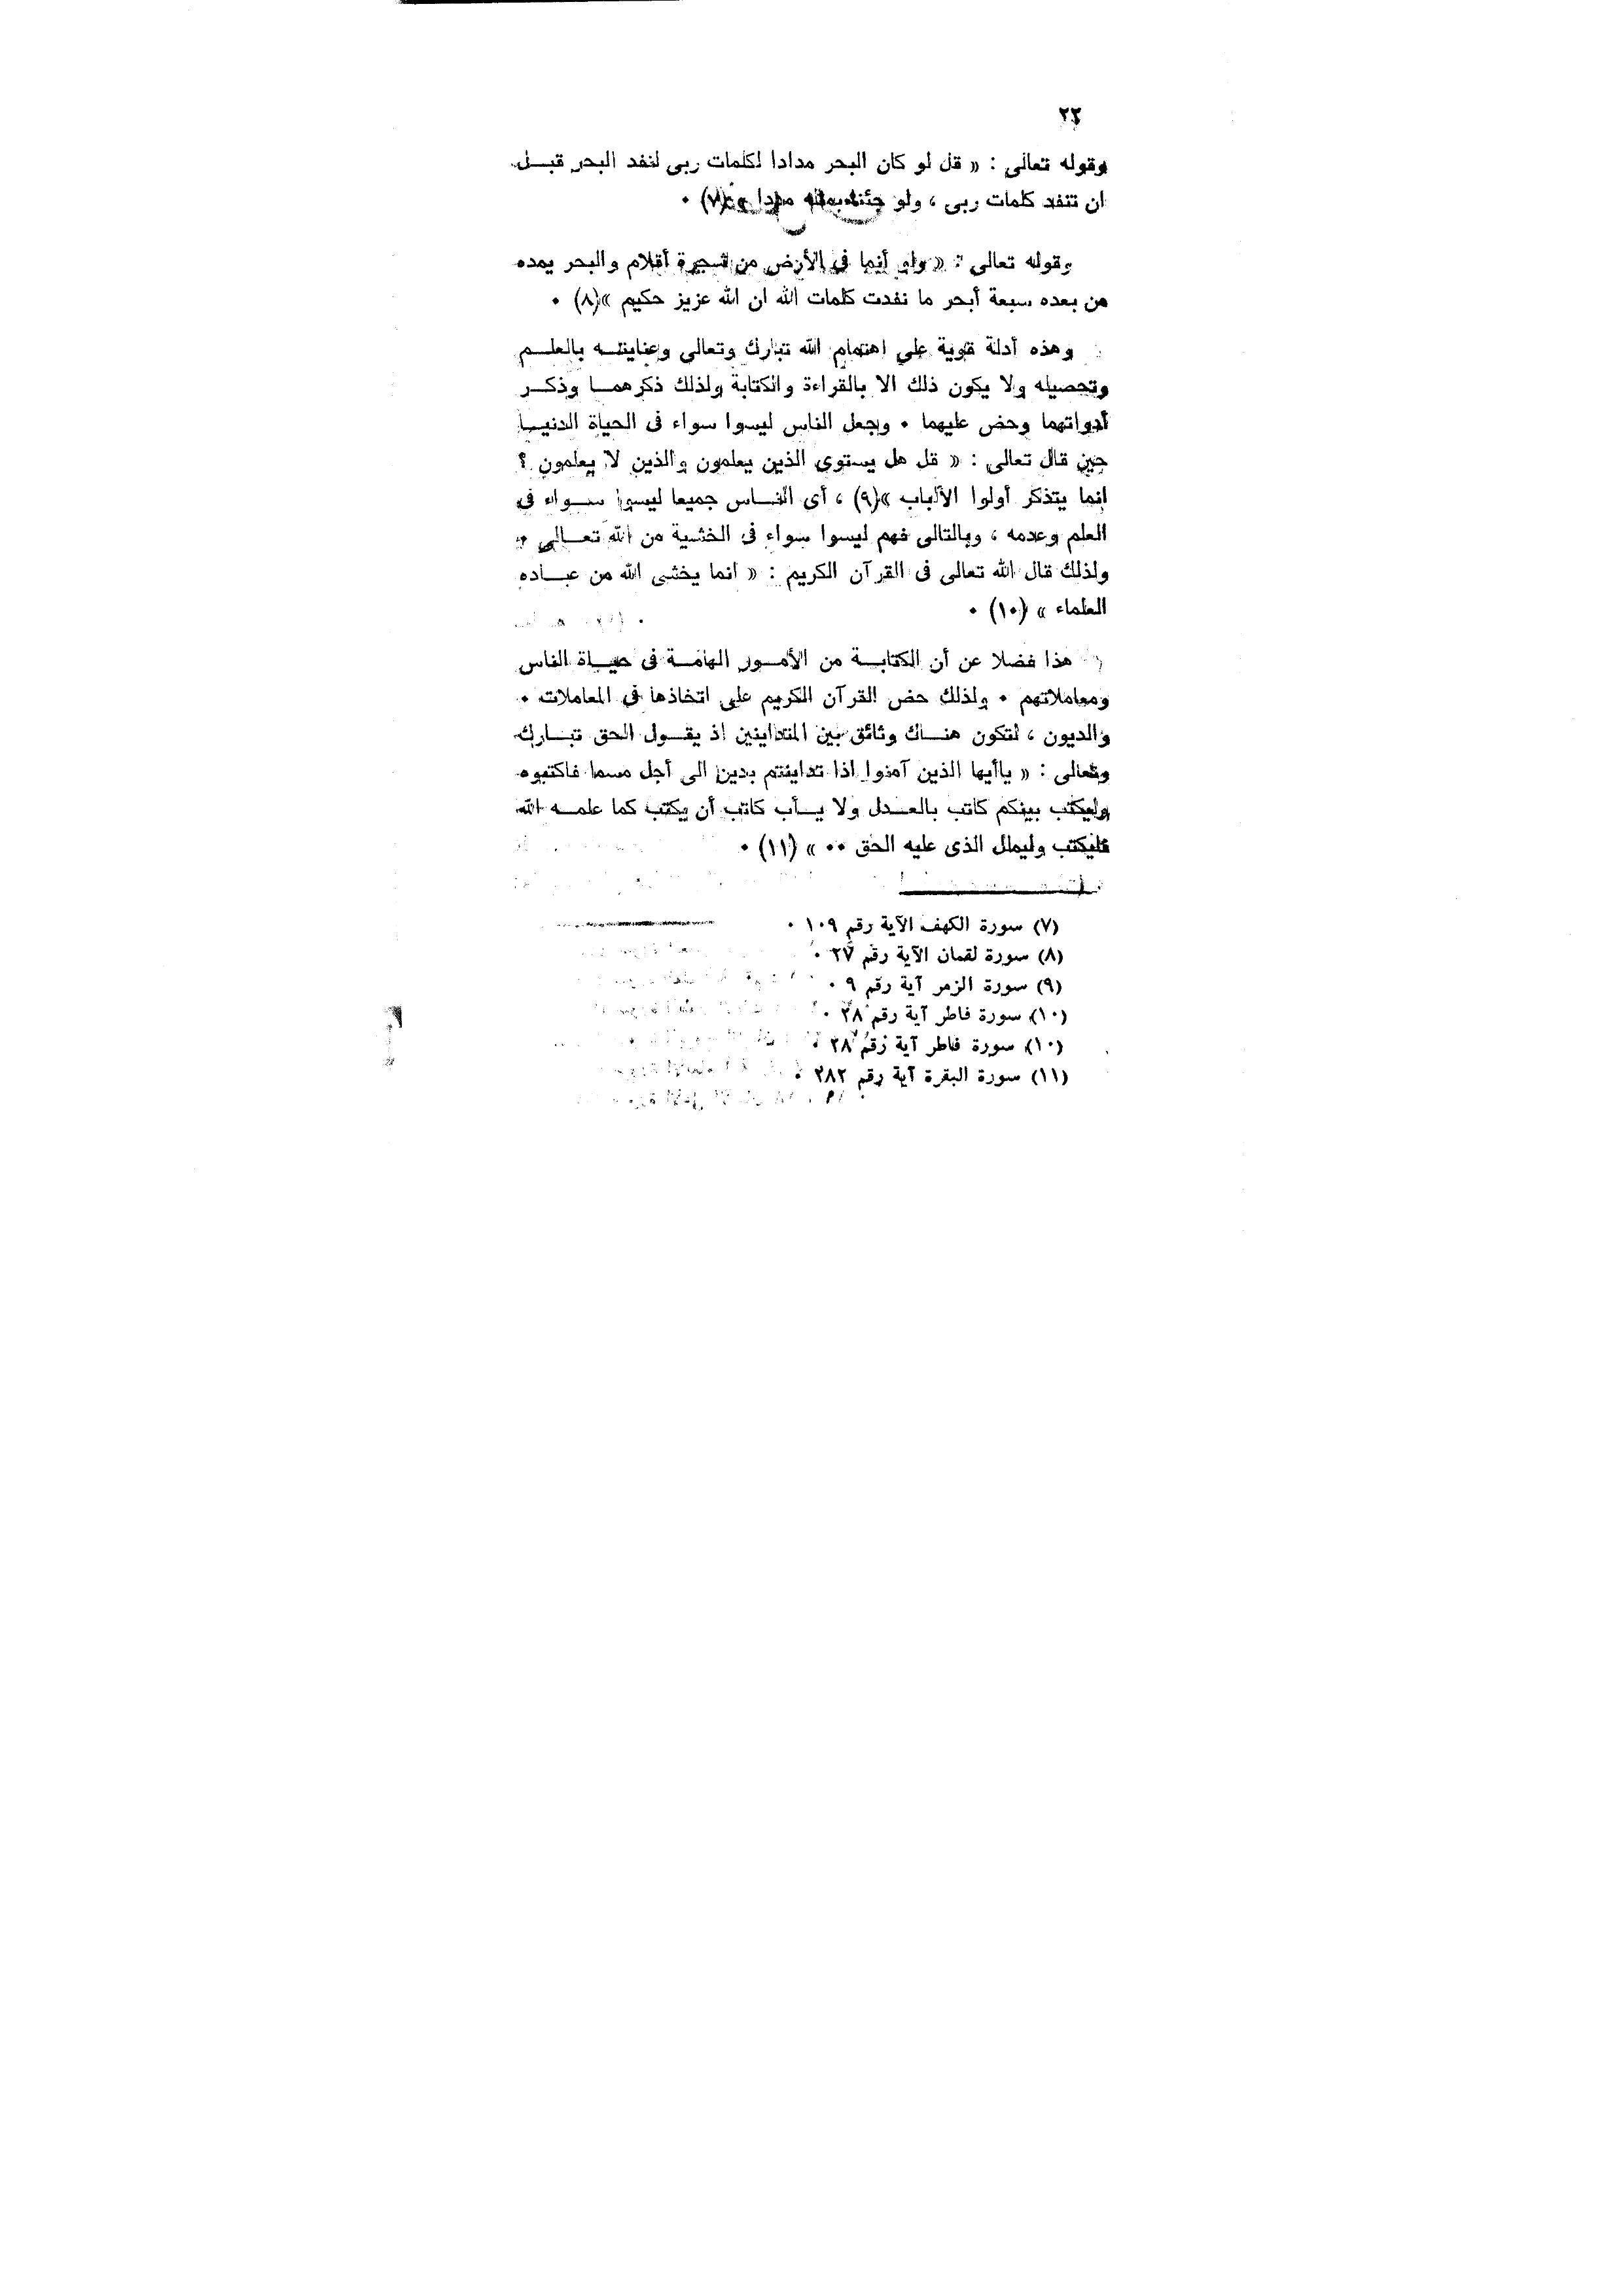 ٢٢
وقوله تعالى : « قل لو كان البحر مدادا لكلمات ربى لنفد البحر قبــل
ان تنفد كلمات ربى ، ولو جئنا بمثله مددا »(٧) ٠
وقوله تعالى : « ولو أنما فى الأرض من شجرة أقلام والبحر يمده
من بعده سبعة أبحر ما نفدت كلمات الله ان الله عزيز حكيم »(٨) ٠
وهذه أدلة قوية على اهتمام الله تبارك وتعالى وعنايتــه بالعلــم
وتحصيله ولا يكون ذلك الا بالقراءة والكتابة ولذلك ذكرهمــا وذكــر
أدواتهما وحض عليهما ٠ وجعل الناس ليسوا سواء فى الحياة الدنيــا
حين قال تعالى : « قل هل يستوى الذين يعلمون والذين لا يعلمون ؟
انما يتذكر أولوا الألباب »(٩) ، أى النــاس جميعا ليسوا ســواء فى
العلم وعدمه ، وبالتالى فهم ليسوا سواء فى الخشية من الله تعــالى ٠
ولذلك قال الله تعالى فى القرآن الكريم : « انما يخشى الله من عبــاده
العلماء » (١٠) ٠
هذا فضلا عن أن الكتابــة من الأمــور الهامــة فى حيــاة الناس
ومعاملاتهم ٠ ولذلك حض القرآن الكريم على اتخاذها فى المعاملات ٠
والديون ، لتكون هنــاك وثائق بين المتداينين اذ يقــول الحق تبــارك
وتعالى : « ياأيها الذين آمنوا اذا تداينتم بدين الى أجل مسما فاكتبوه
وليكتب بينكم كاتب بالعــدل ولا يــأب كاتب أن يكتب كما علمــه الله
فليكتب وليملل الذى عليه الحق ٠٠ » (١١) ٠
(٧) سورة الكهف الآية رقم ١٠٩ ٠
(٨) سورة لقمان الآية رقم ٢٧ ٠
(٩) سورة الزمر آية رقم ٩ ٠
(١٠) سورة فاطر آية رقم ٢٨ ٠
(١٠) سورة فاطر آية رقم ٢٨ ٠
(١١) سورة البقرة آية رقم ٢٨٢ ٠